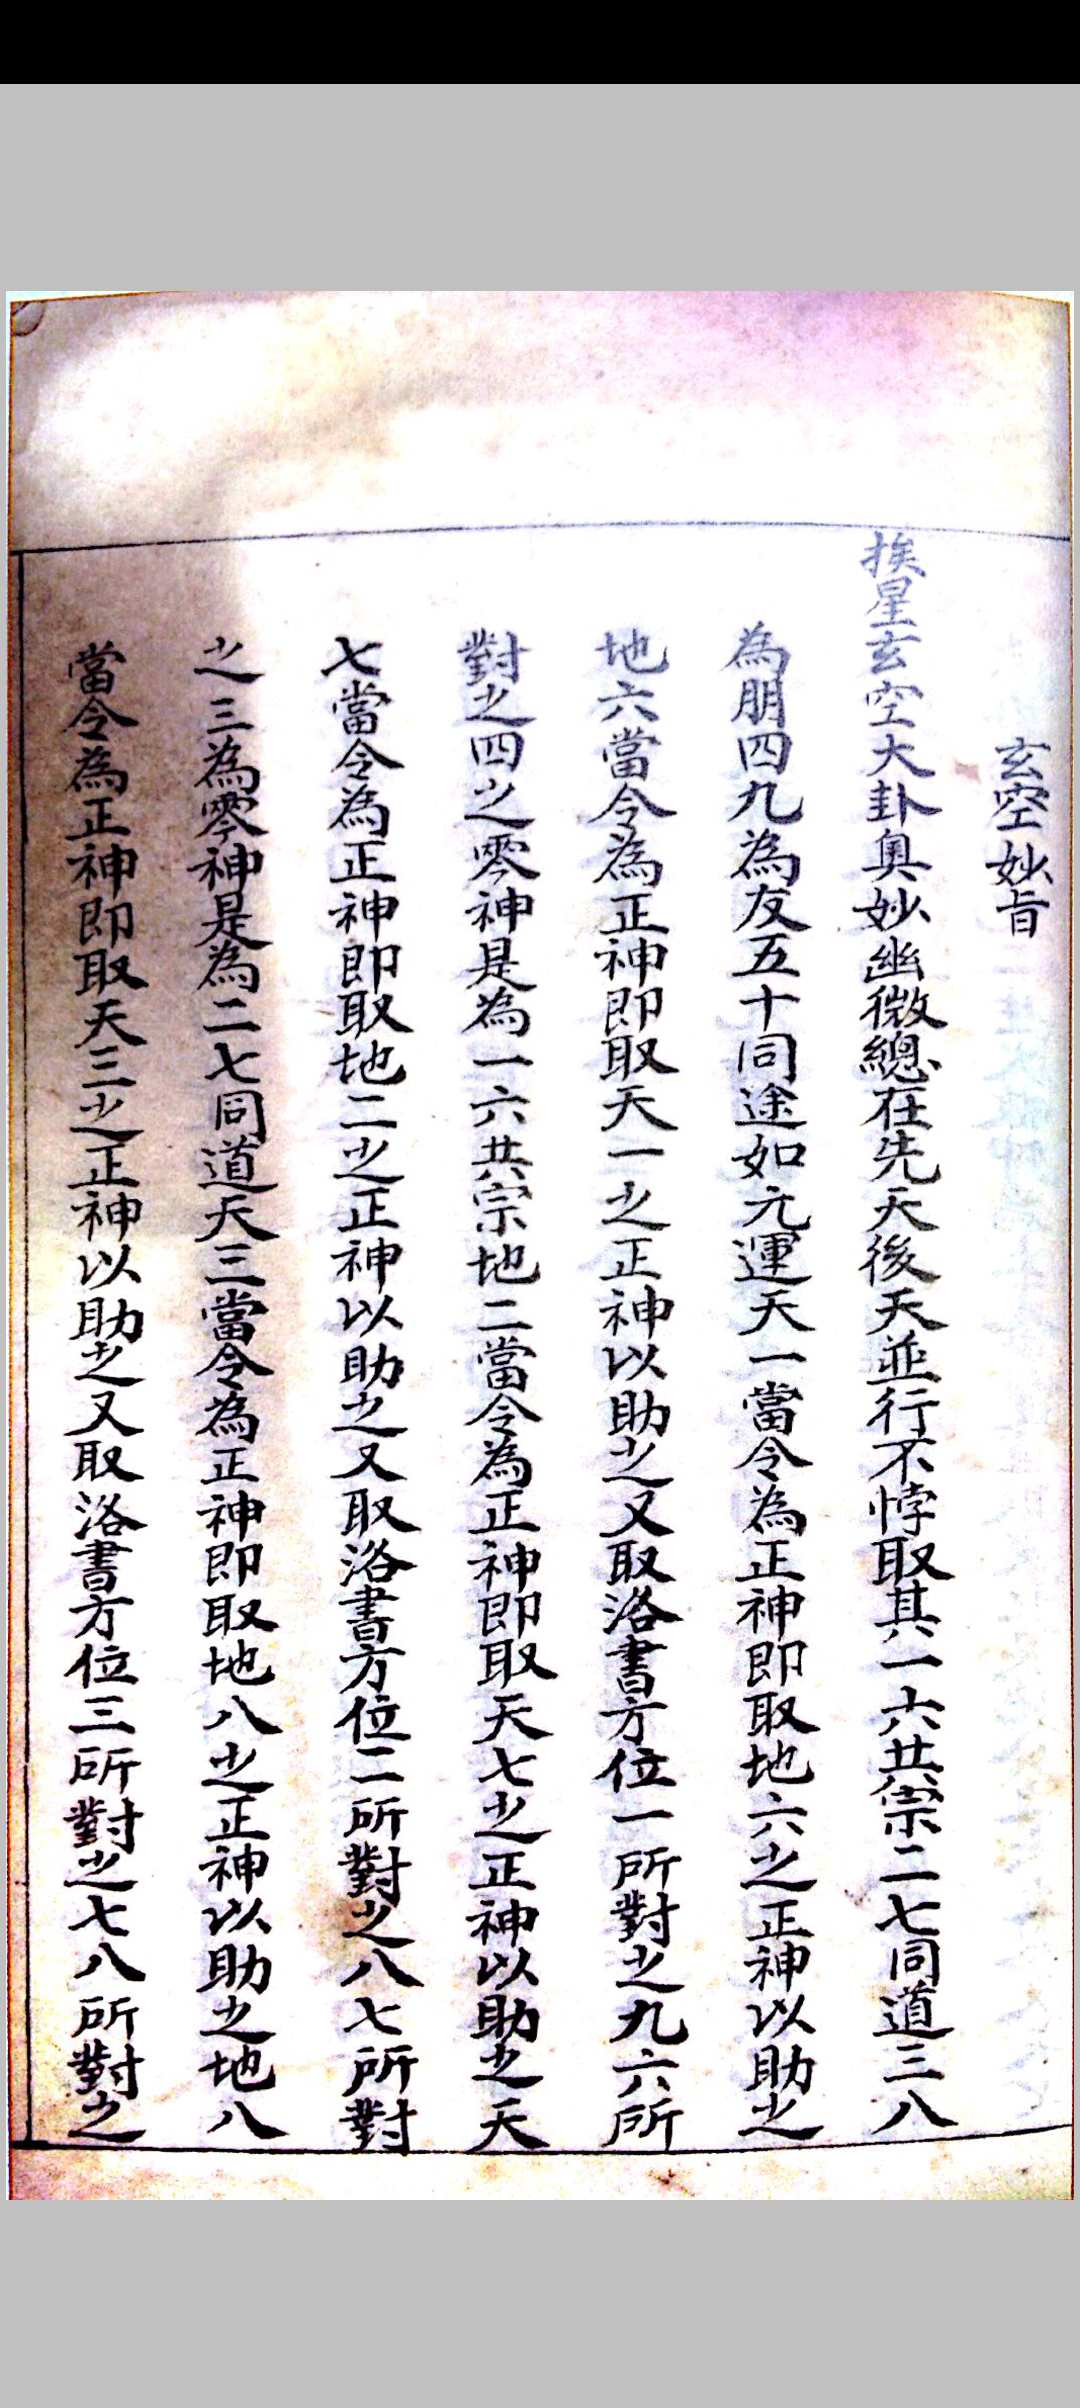 玄空妙旨
挨星玄空大卦奧妙幽微總在先天後天並行不悖取其一六共宗二七同道三八
為朋四九為友五十同途如元運天一當令為正神即取地六之正神以助之
地六當令為正神即取天一之正神以助之又取洛書方位一所對之九六所
對之四之零神是為一六共宗地二當令為正神即取天七之正神以助之天
七當令為正神即取地二之正神以助之又取洛書方位二所對之八七所對
之三為零神是為二七同道天三當令為正神即取地八之正神以助之地八
當令為正神即取天三之正神以助之又取洛書方位三所對之七八所對之